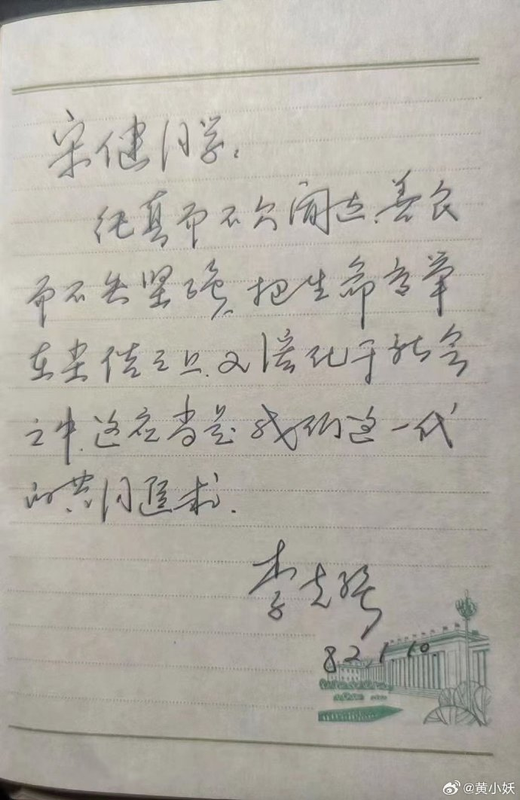 宋健同学:
纯真而不欠闻达,善良
而不失坚强,把生命高举
在尘俗之上,又溶化于社会
之中,这应当是我们这一代
的共同追求.
李克强
82.1.10
@黄小妖